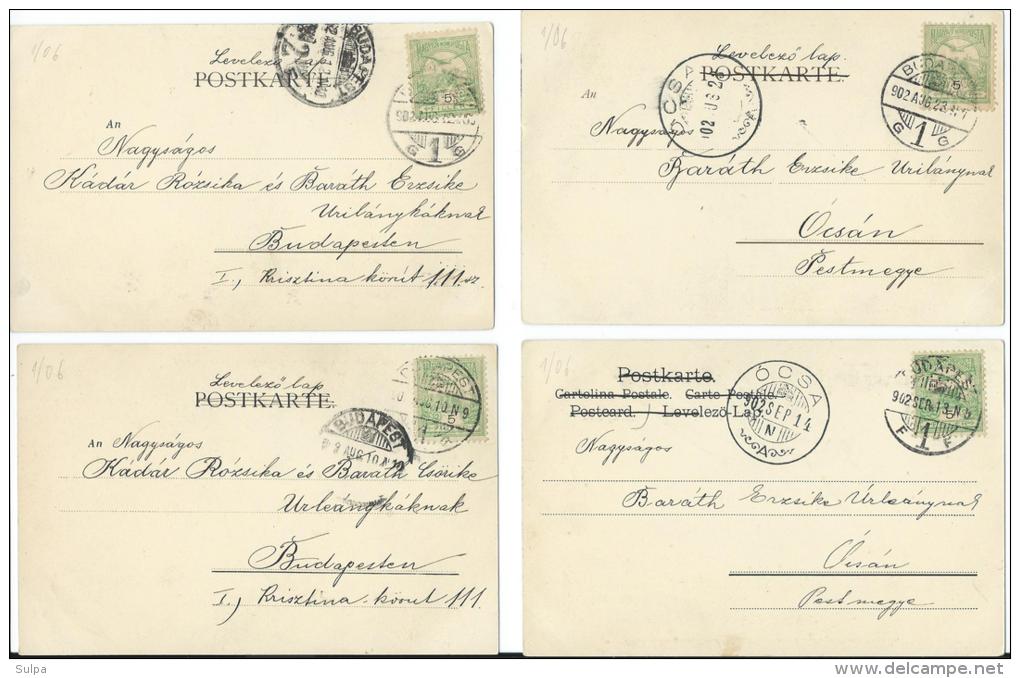 1/06
Levelező lap.
POSTKARTE.
BUDAPEST
MAGYAR KIR. POSTA
5
1
G G
An
Nagyságos
Kádár Rózsika és Baráth Erzsike
Urilánykáknak
Budapesten
I., Krisztina körút 111. sz.
1/06
Levelező lap.
POSTKARTE.
ÓCSA
902 AUG 2
BUDAPEST
902 AUG 23 N
1
G G
An
Nagyságos
Baráth Erzsike Urilánynak
Ócsán
Pestmegye
1/06
Levelező lap
POSTKARTE.
BUDAPEST
AUG 10 N 9
5
An Nagyságos
BUDAPEST
AUG 10 N
Kádár Rózsika és Baráth Csörike
Urleánykáknak
Budapesten
I., Krisztina körut 111.
1/06
Postkarte.
Cartolina Postale. Carte Postale.
Postcard. Levelező-Lap.
ÓCSA
902 SEP 14
N
A
BUDAPEST
902 SEP. 13. N
5
F 1 F
Nagyságos
Baráth Erzsike Úrleánynak
Ócsán
Pestmegye
Sulpa
www.delcampe.net